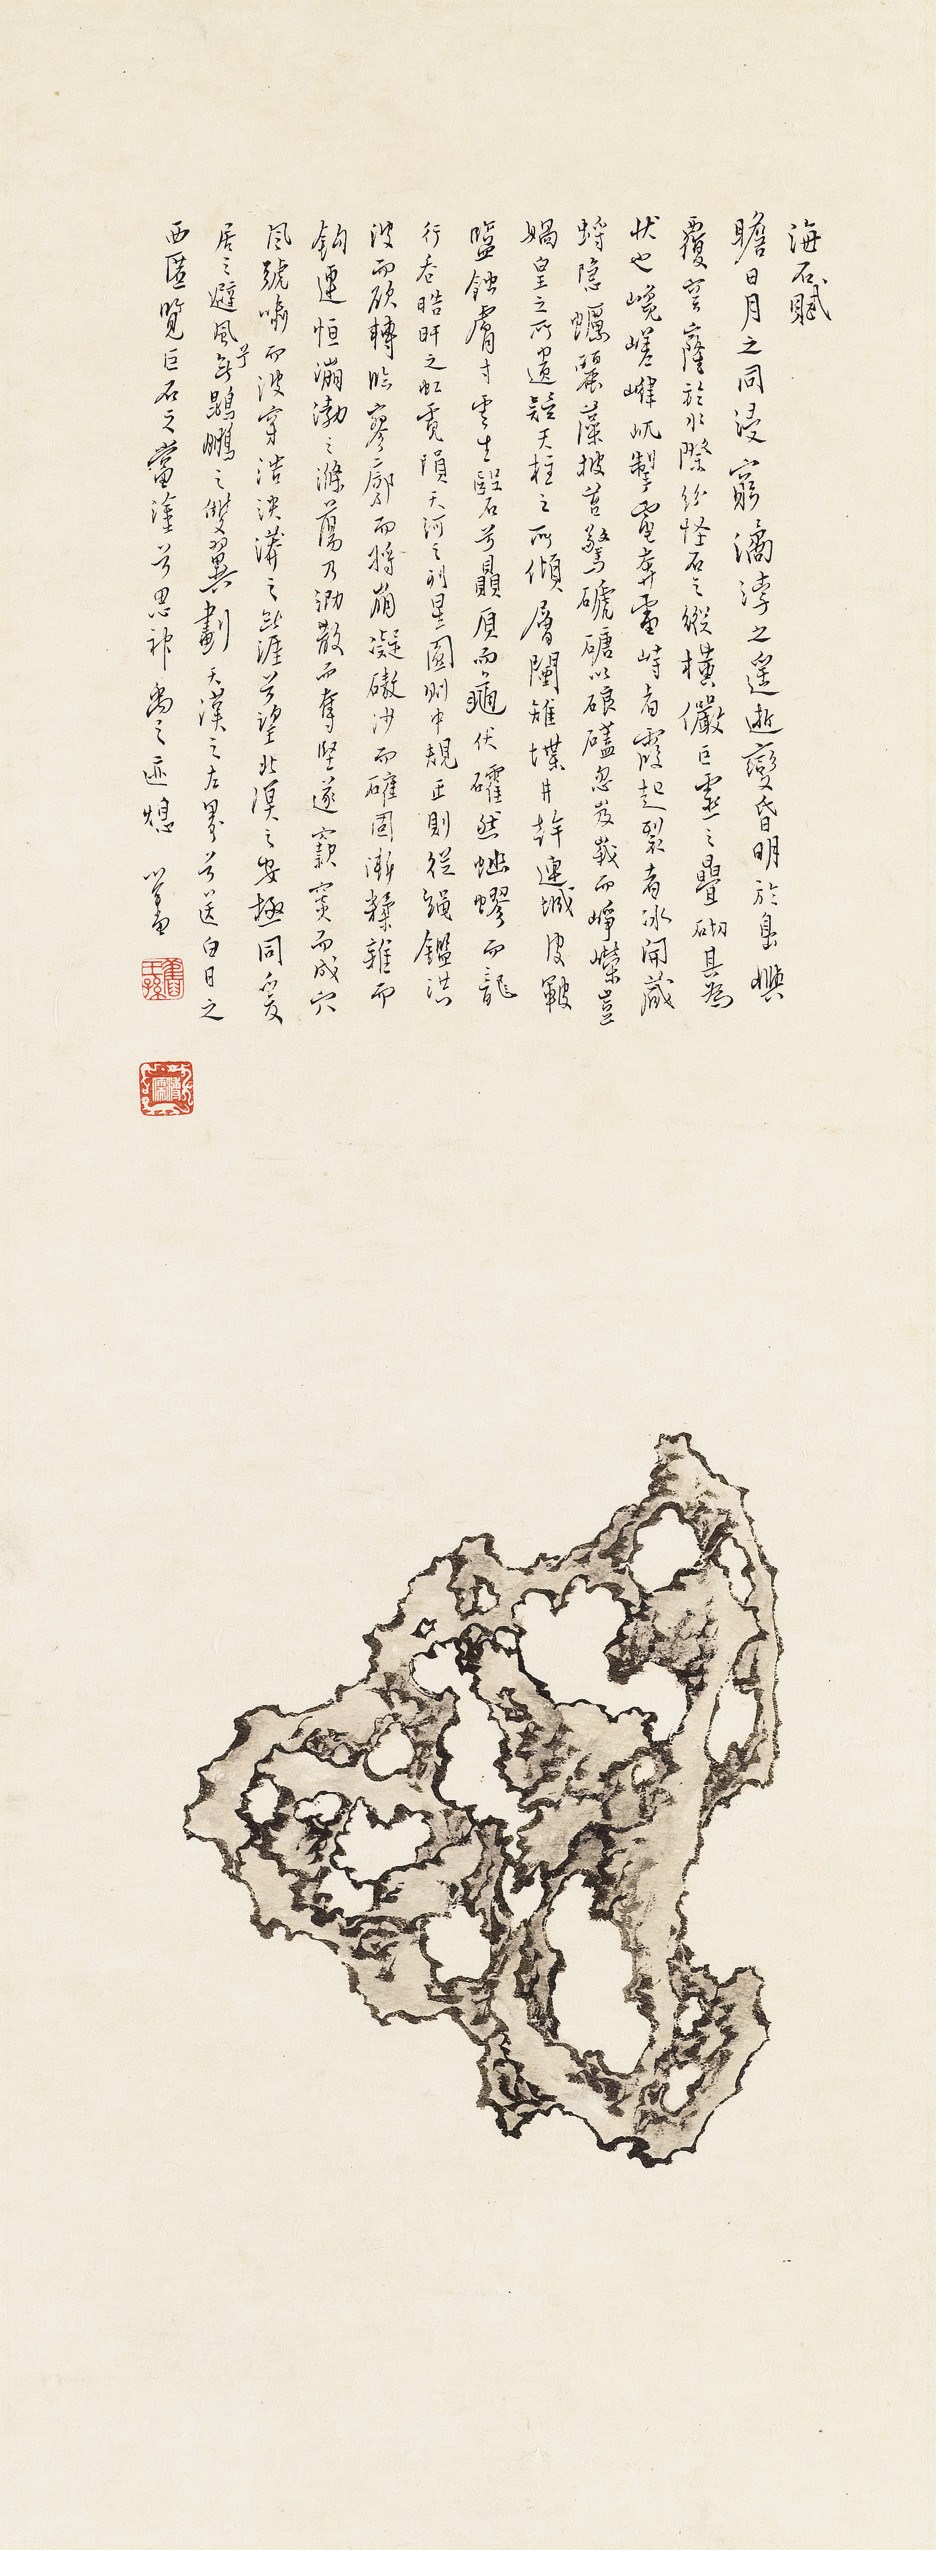 海石賦
瞻日月之同浸窮潏淳之遥逝變昏明於島嶼
覆穹窿於水際紛怪石之縱橫儼巨靈之疊砌其為
狀也巉嵯嵂屼掣電奔雷峙者霞起裂者冰開藏
蜉隱蠣麗藻披苔驚磃磄以硠礚忽岌峩而崢嶸豈
媧皇之所遺疑天柱之所傾層闉雉堞井幹連城皮皺
鹽蝕膚寸雲生硻石兮贔屓而龜伏礭然蚴蟉而龍
行吞晧旰之虹霓隕天河之列星圓則中規正則從繩鑑洪
波而欲轉臨寥廓而將崩凝礉沙而確固漸糅雜而
鉤連恒漰渤之滌蕩乃泐散而奪堅遂窾窾而成穴
風號嘯而波穿浩泱漭之無涯兮望北溟之安極同爰
居之避風兮無鵾鵬之雙翼劃天漢之左界兮送白日之
西匿覽巨石之當塗兮思神禹之迹熄 心畬
舊王孫
溥儒